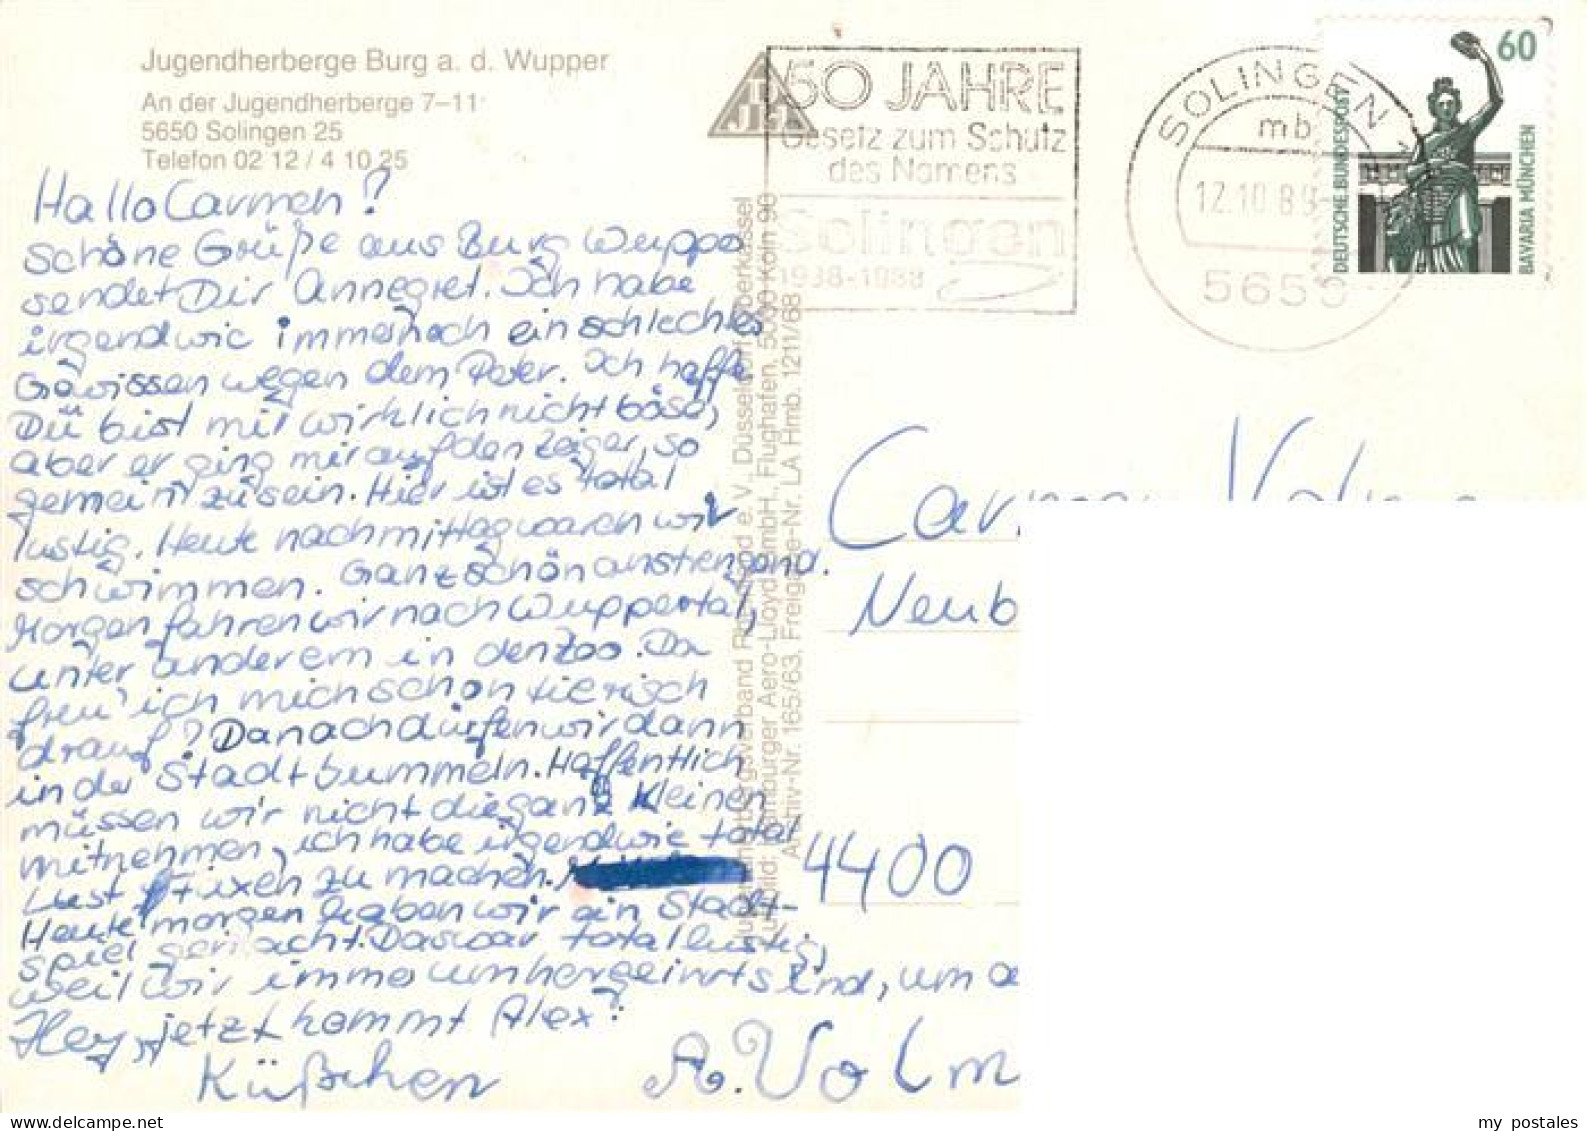 Jugendherberge Burg a. d. Wupper
An der Jugendherberge 7–11
5650 Solingen 25
Telefon 02 12 / 4 10 25
DJH
50 JAHRE
Gesetz zum Schutz
des Namens
Solingen
1938-1988
SOLINGEN 1
mb
12.10.89
5650
60
DEUTSCHE BUNDESPOST
BAVARIA MÜNCHEN
Hallo Carmen!
schöne Grüße aus Burg Wupper
sendet Dir Annegret. Ich habe
irgendwie immernoch ein schlechtes
Gewissen wegen dem Peter. Ich hoffe
Dü bist mir wirklich nicht böse,
aber er ging mir auf den Zeiger, so
gemein zu sein. Hier ist es total
lustig. Heute nachmittag waren wir
schwimmen. Ganz schön anstrengend.
Morgen fahren wir nach Wuppertal,
unter anderem in den Zoo. Da
freu' ich mich schon tierisch
drauf! Danach dürfen wir dann
in der Stadt bummeln. Hoffentlich
müssen wir nicht die ganz kleinen
mitnehmen, ich habe irgendwie total
Lust Faxen zu machen.
Heute morgen haben wir ein Stadt-
spiel gemacht. Das war total lustig,
weil wir immer umhergeirrt sind, um
Hey, jetzt kommt Alex!
Küßchen
A. Volm
Jugendherbergsverband Rheinland e. V., Düsseldorf-Oberkassel
Luftbild: Hamburger Aero-Lloyd GmbH., Flughafen, 5000 Köln 90
Archiv-Nr. 165/63, Freigabe-Nr. LA Hmb. 1211/68
Carmen
Neub
4400
my postales